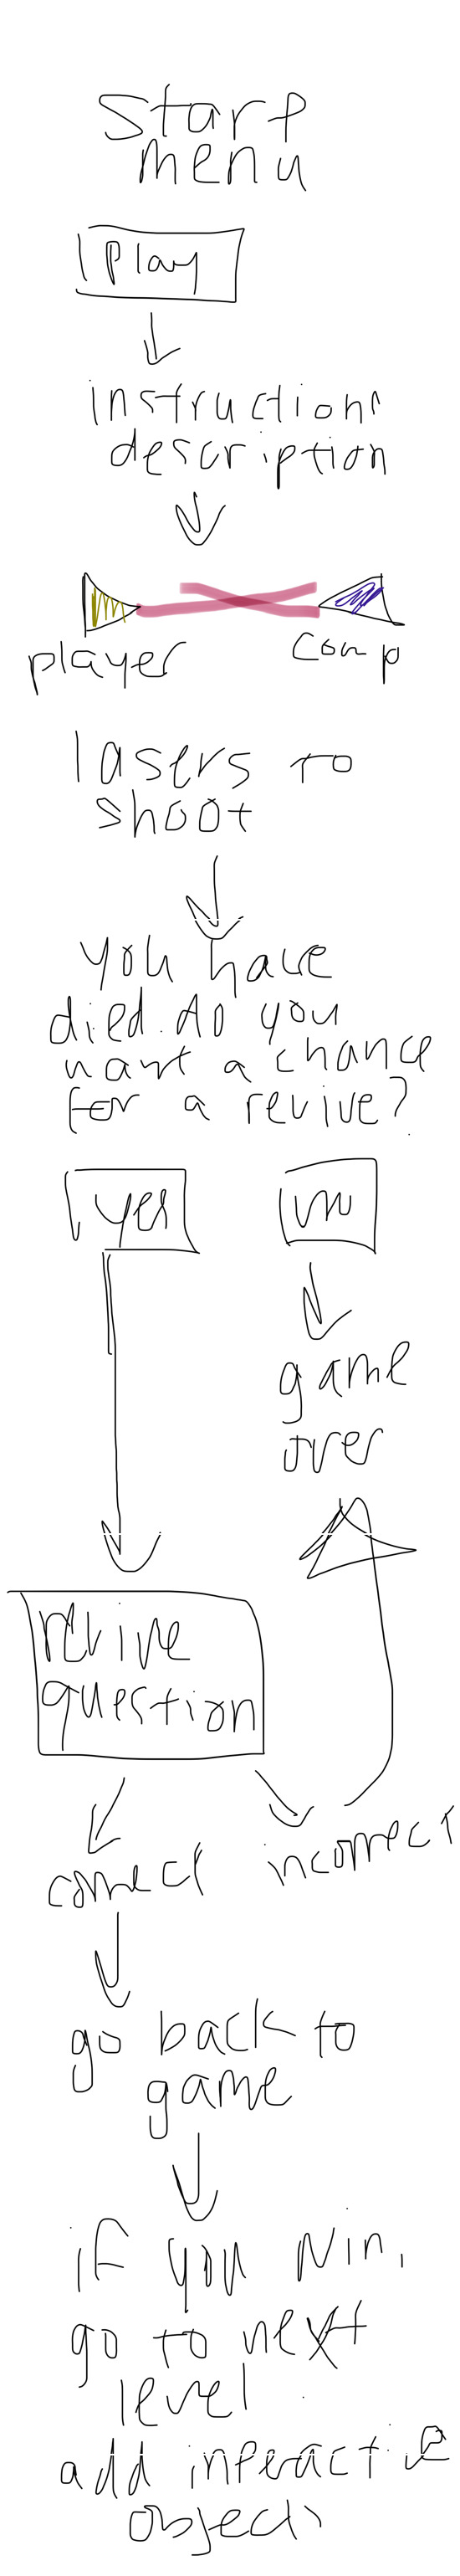 Start
menu
play
instructions
description
player
comp
lasers to
shoot
you have
died. do you
want a chance
for a revive?
yes
no
game
over
revive
question
correct
incorrect
go back to
game
if you win,
go to next
level.
add interactive
objects